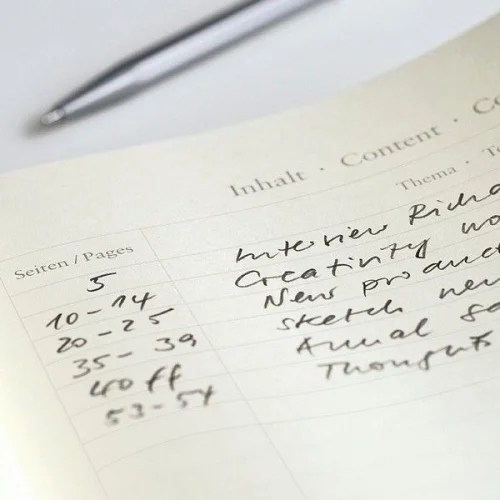 Inhalt · Content · Co
Thema · To
Seiten / Pages
5 Interview Richa
10-14 Creativity wo
20-25 New product
35-39 sketch new
40 ff Annual
53-54 Thoughts